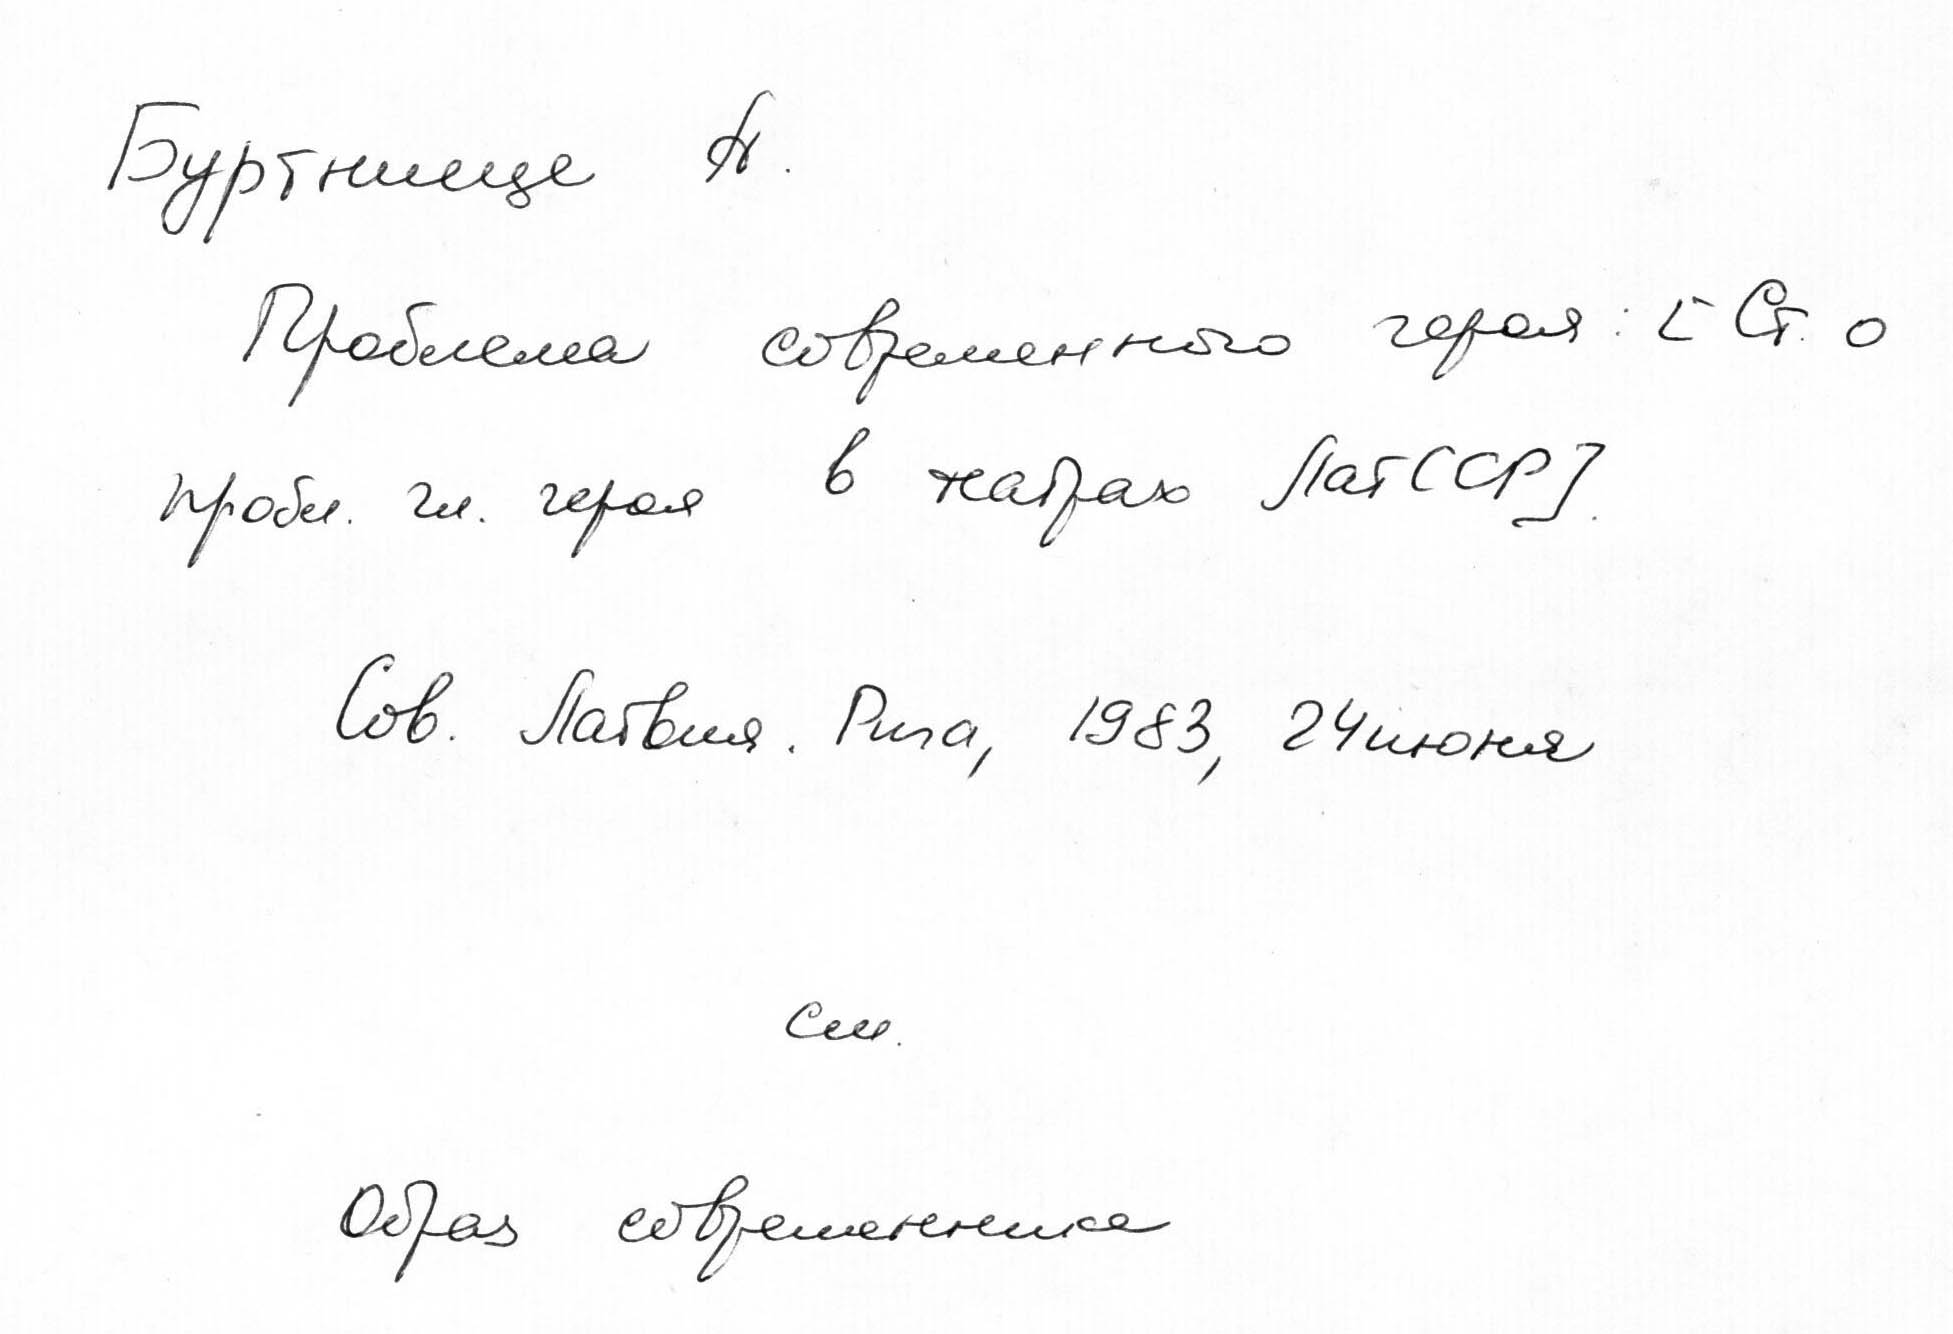 Буртнице А.
Проблема современного героя: [Ст. о
пробл. гл. героя в театрах ЛатССР].
Сов. Латвия. Рига, 1983, 24 июня
См.
Образ современника